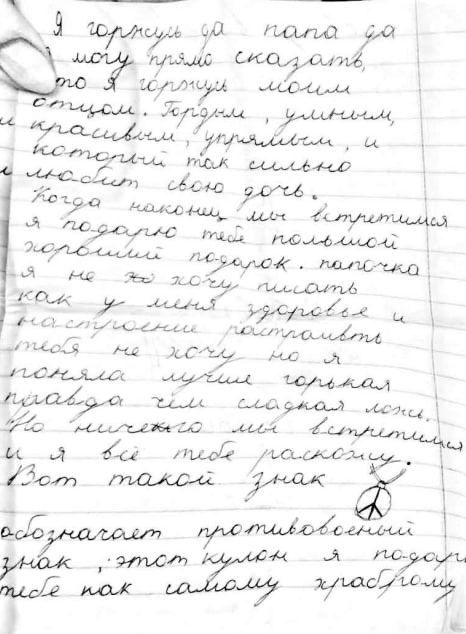 Я горжусь да папа да
я могу прямо сказать,
что я горжусь моим
отцом. Гордым, умным,
и красивым, упрямым, и
который так сильно
и любит свою дочь.
Когда наконец мы встретимся
я подарю тебе польшой
хороший подарок. папочка
я не хочу писать
как у меня здоровье и
настроение растраивть
тебя не хочу но я
поняла лучше горькая
правда чем сладкая ложь.
Но ничего мы встретимся
и я всё тебе раскожу.
Вот такой знак
обозначает противовоеный
знак, этот кулон я подарю
тебе как самому храброму